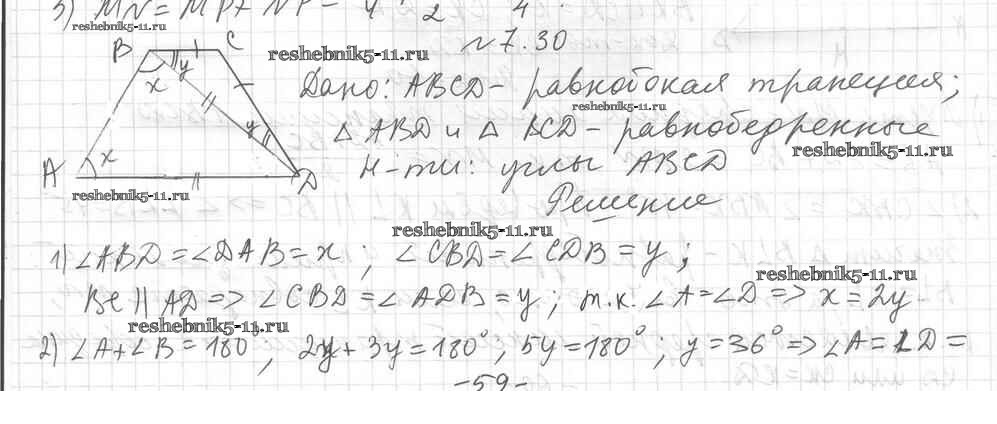 3) MN = MP + NP =
reshebnik5-11.ru
B C
x y
y
A x D
reshebnik5-11.ru
№7.30
reshebnik5-11.ru
Дано: ABCD - равнобокая трапеция;
reshebnik5-11.ru
△ ABD и △ BCD - равнобедренные
reshebnik5-11.ru
Н-ти: углы ABCD
Решение
reshebnik5-11.ru
1) ∠ABD = ∠DAB = x ; ∠CBD = ∠CDB = y ;
reshebnik5-11.ru
BC || AD => ∠CBD = ∠ADB = y ; т.к. ∠A = ∠D => x = 2y
reshebnik5-11.ru
2) ∠A + ∠B = 180°, 2y + 3y = 180°, 5y = 180° ; y = 36° => ∠A = ∠D =
-59-